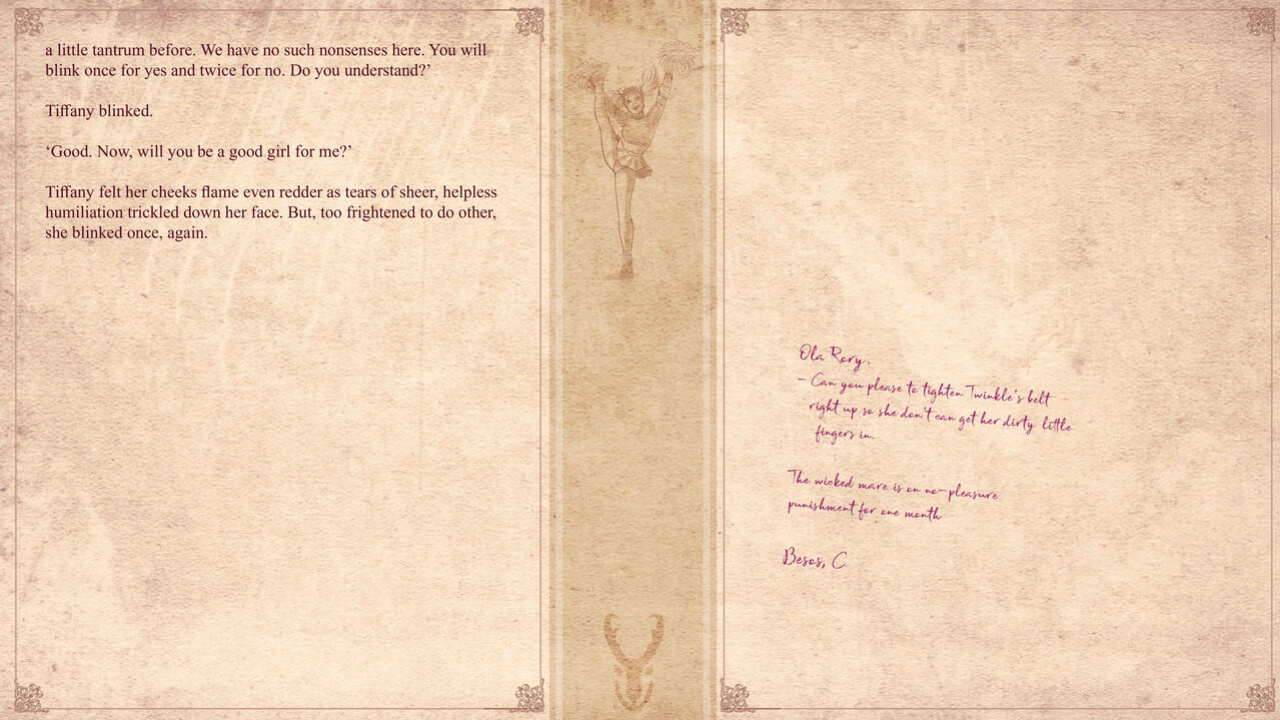 a little tantrum before. We have no such nonsenses here. You will
blink once for yes and twice for no. Do you understand?’
Tiffany blinked.
‘Good. Now, will you be a good girl for me?’
Tiffany felt her cheeks flame even redder as tears of sheer, helpless
humiliation trickled down her face. But, too frightened to do other,
she blinked once, again.
Ola Rory.
- Can you please to tighten Twinkle's belt
right up so she don't can get her dirty little
fingers in.
The wicked mare is on no-pleasure
punishment for one month
Besos, C